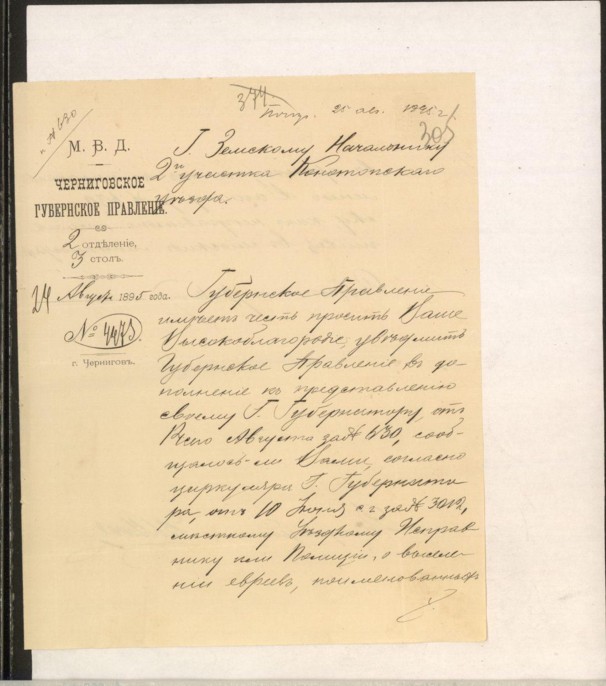 374
Получ. 25 авг. 1895 г.
305
№ 630
М. В. Д.
ЧЕРНИГОВСКОЕ
ГУБЕРНСКОЕ ПРАВЛЕНІЕ.
2 отдѣленіе,
3 столъ.
24 Август 1895 года.
№ 4473
г. Черниговъ.
Г. Земскому Начальнику
2го участка Конотопскаго
уѣзда.
Губернское Правленіе
имѣетъ честь просить Ваше
Высокоблагородіе увѣдомить
Губернское Правленіе въ до-
полненіе къ представленію
своему Г. Губернатору, отъ
Августа за № 630, сооб-
щалось-ли Вами, согласно
циркуляра Г. Губернато-
ра, отъ 10 Іюля с. г. за № 3012,
мѣстному Уѣздному Исправ-
нику или Полиціи, о выселе-
ніи евреевъ, поименованныхъ